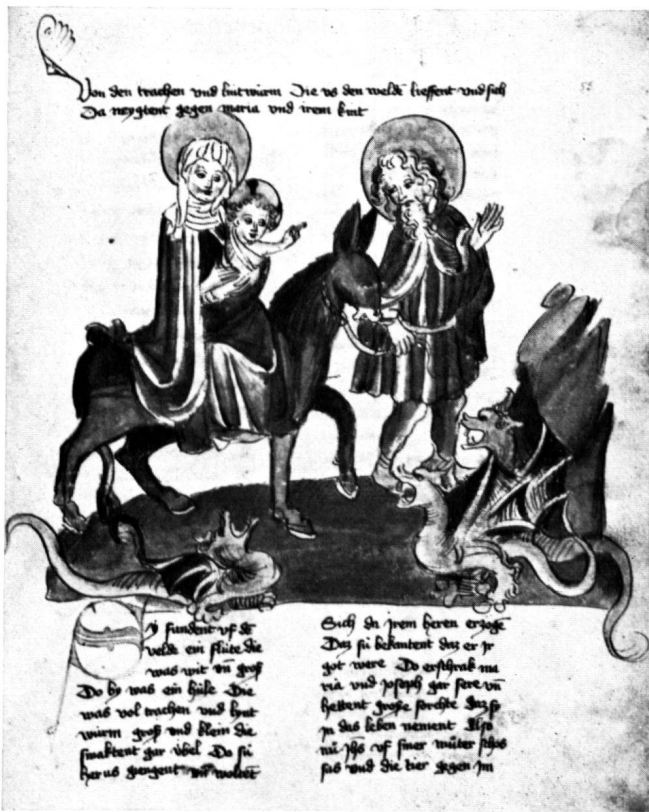 Von den trachen vnd lintwürm Die vs den weldē lieffent vnd sich
Da neygtent gegen maria vnd irem kint
55
Sÿ fundent vf dē
velde ein flüte die
was wit vn̄ groß
Do by was ein hüle Die
was vol trachen vnd lynt
würm groß vnd klein die
smaktent gar übel Do sü
her us giengent vn̄ woltēt
Sich da jrem heren erzögē
Daz sü bekantent daz er jr
got were Do erschrak ma
ria vnd joseph gar sere vn̄
hettent große forchte daz sü
jn das leben nement Also
nü jhs vf siner müter schos
sas vnd die tier gegen jm